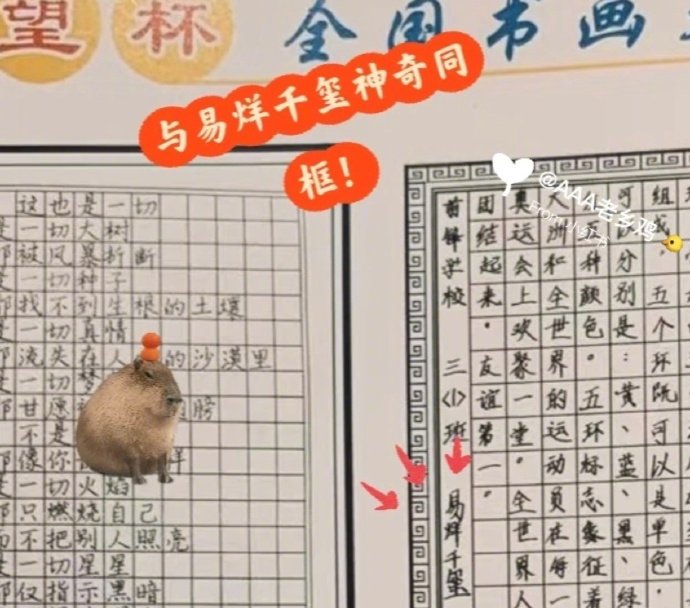 望杯 全国书画
与易烊千玺神奇同
框！
@AAA老乡鸡
From 小红书
这也是一切
是一切大树
都被风暴折断
是一切种子
都找不到生根的土壤
是一切真情
都流失在人的沙漠里
是一切梦
都甘愿膀
不是
都像你
是一切火焰
都只燃烧自己
而不把别人照亮
是一切星星
都仅指示黑暗
组成，五个环既可以是单色
分别是：黄、蓝、黑、绿
种颜色。五环标志象征着
大洲和全世界的运动员在每一
奥运会上欢聚一堂。全世界人
团结起来。友谊第一。
前锋学校 三〈1〉班 易烊千玺